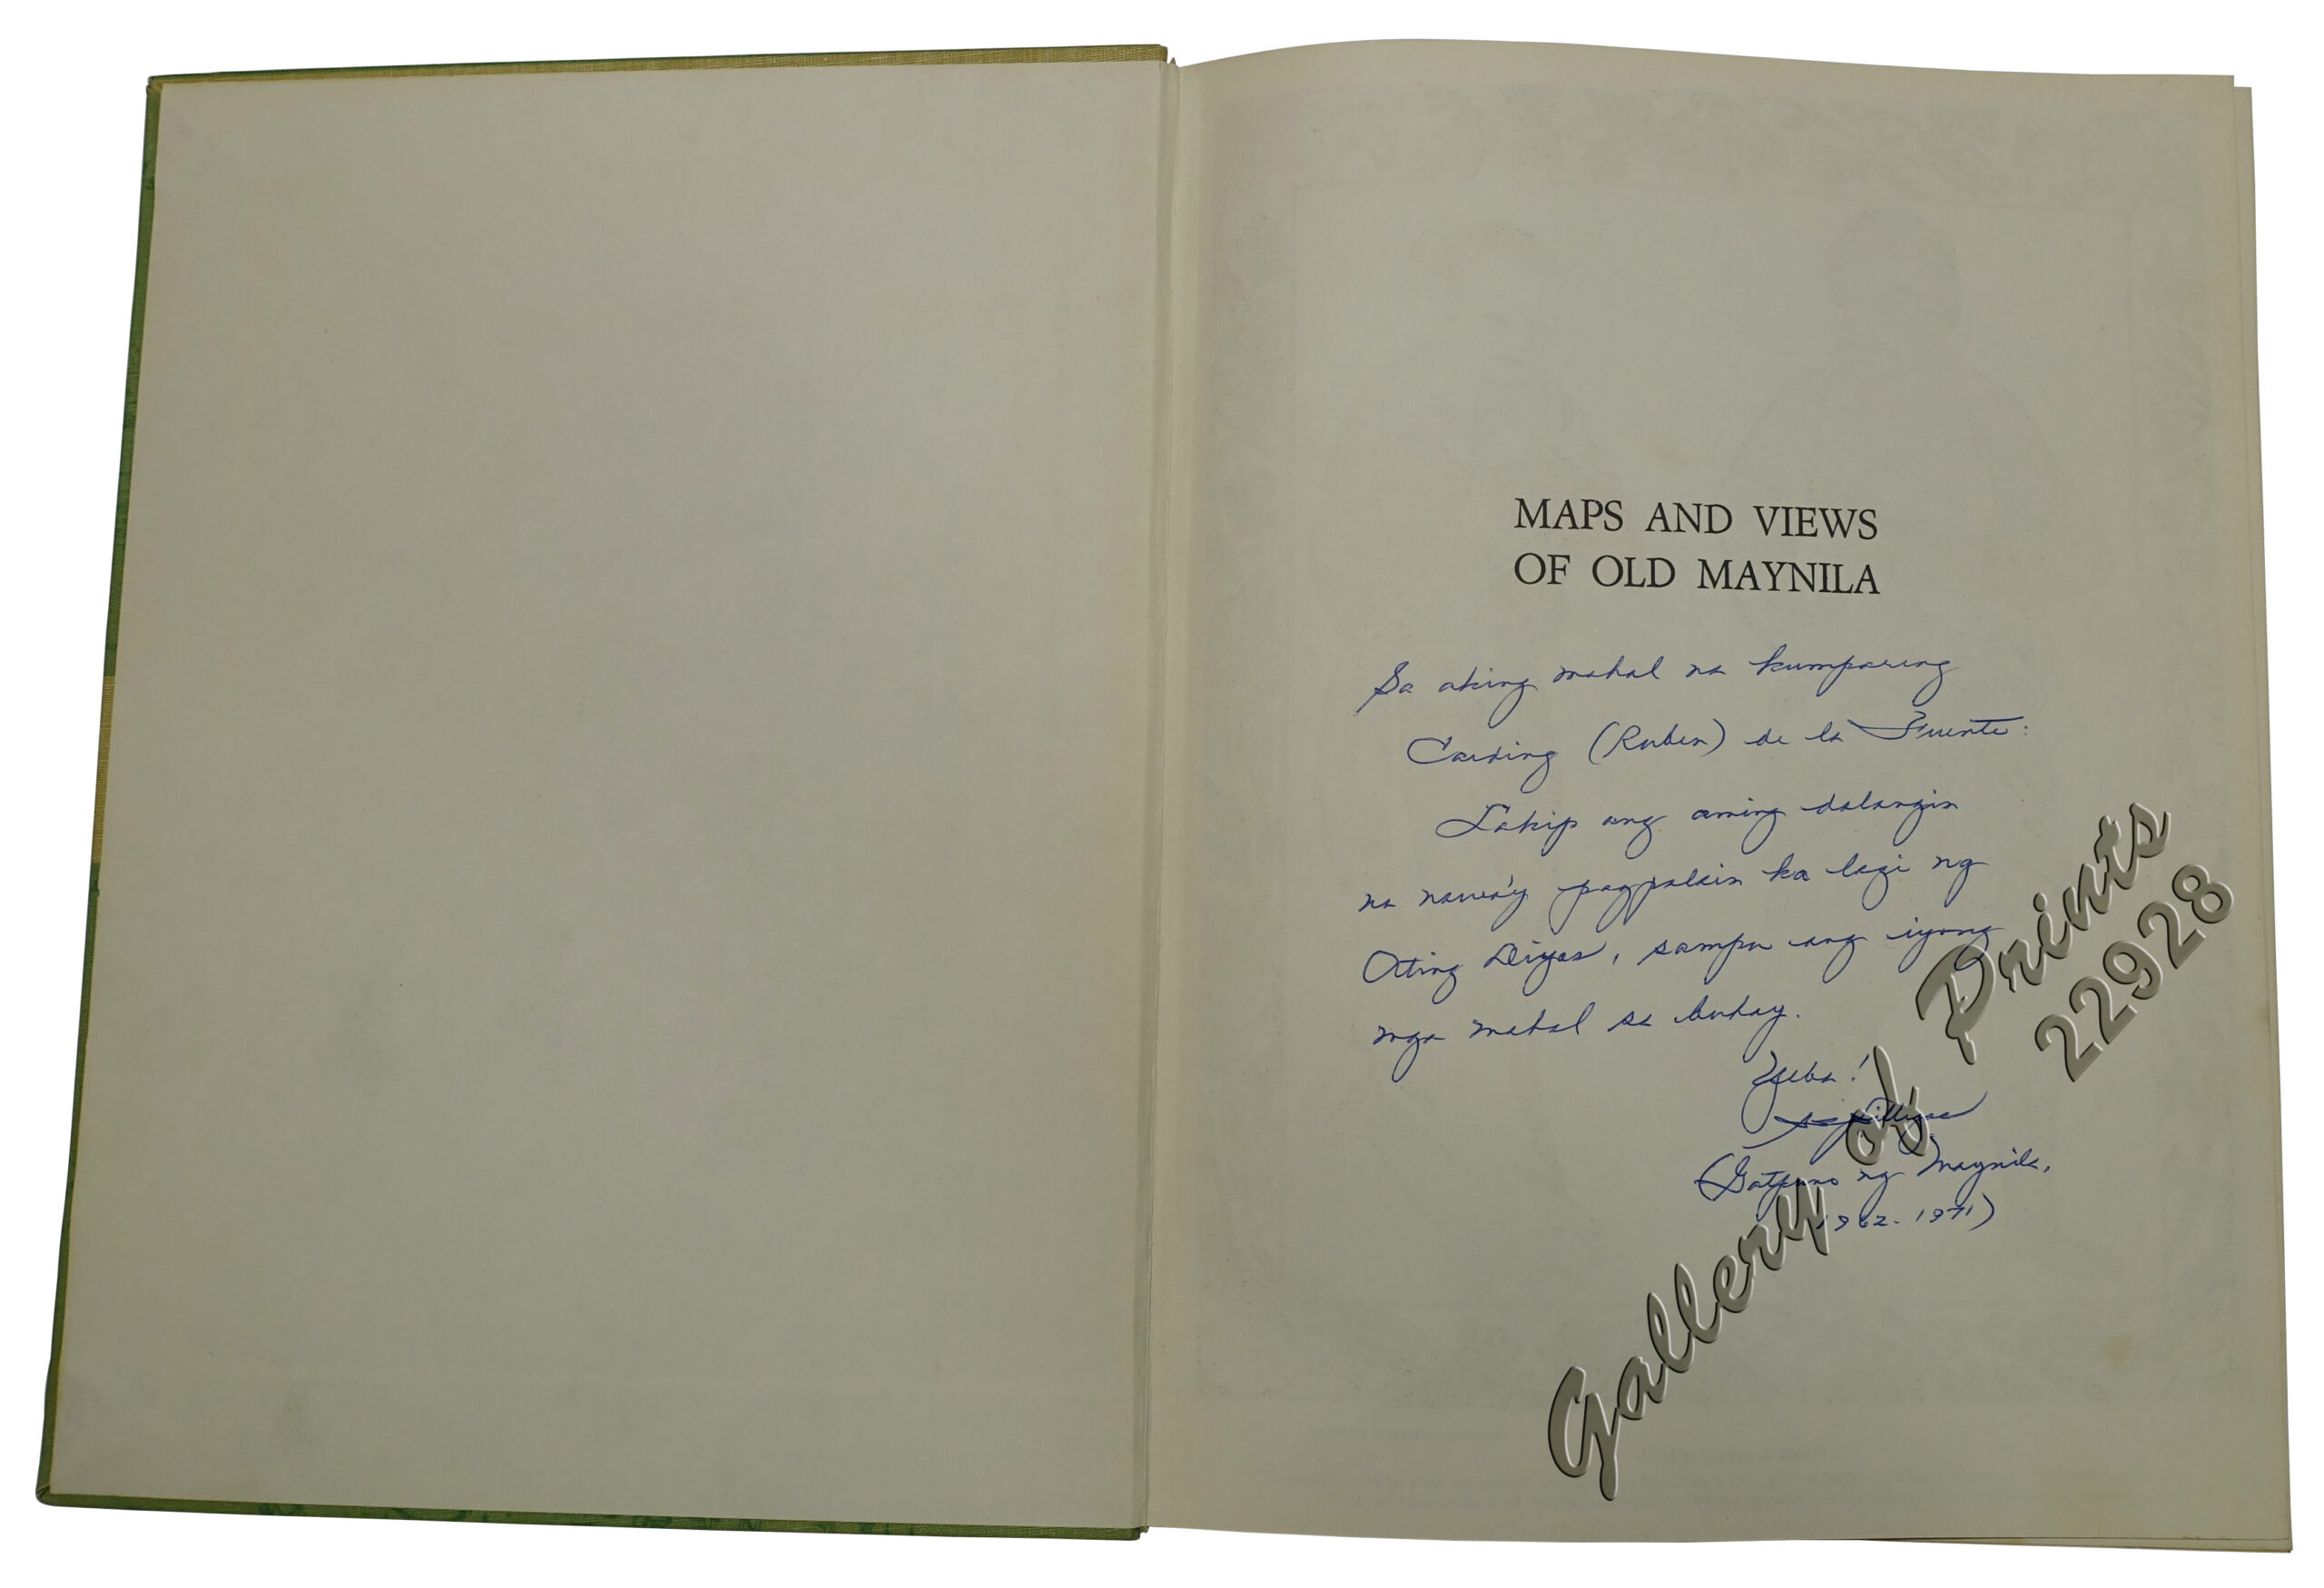 MAPS AND VIEWS
OF OLD MAYNILA
Sa aking mahal na kumparing
Carding (Ruben) de la Fuente:
Lakip ang aming dalangin
na nawa'y pagpalain ka lagi ng
Ating Diyos, sampu ang iyong
mga mahal sa buhay.
Villegas
(Gatpuno ng Maynila,
1962-1971)
Gallery of Prints
22928